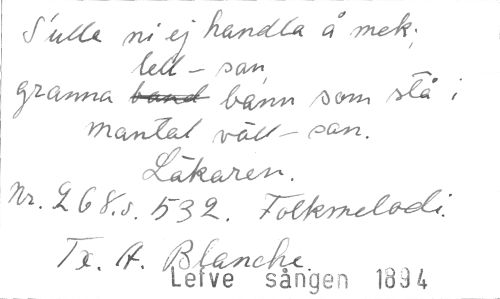 S'ulle ni ej handla å mek,
lell-san,
granna band bånn som stå i
mantal väll-san.
Läkaren.
Nr. 268.s. 532. Folkmelodi.
Te. A. Blanche.
Lefve sången 1894